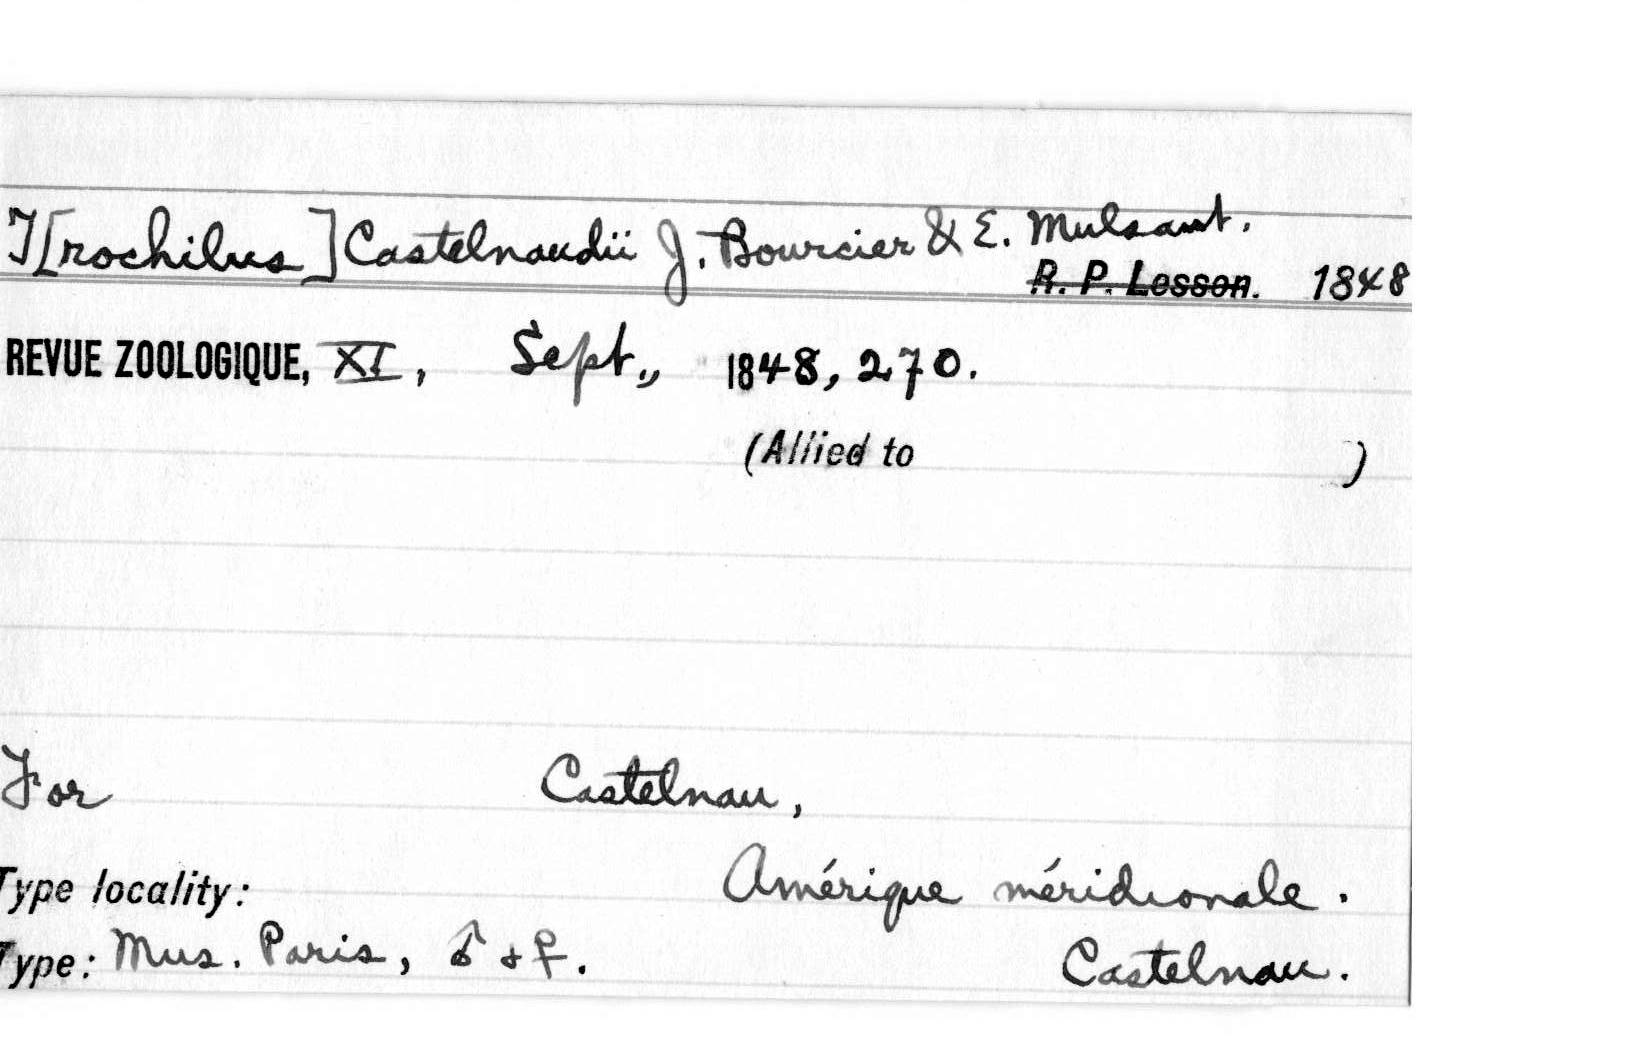 T[rochilus] Castelnaudii J. Bourcier & E. Mulsant.
R. P. Lesson. 1848
REVUE ZOOLOGIQUE, XI, Sept., 1848, 270.
(Allied to )
For Castelnau,
Type locality: Amérique méridionale.
Type: Mus. Paris, ♂ & ♀. Castelnau.